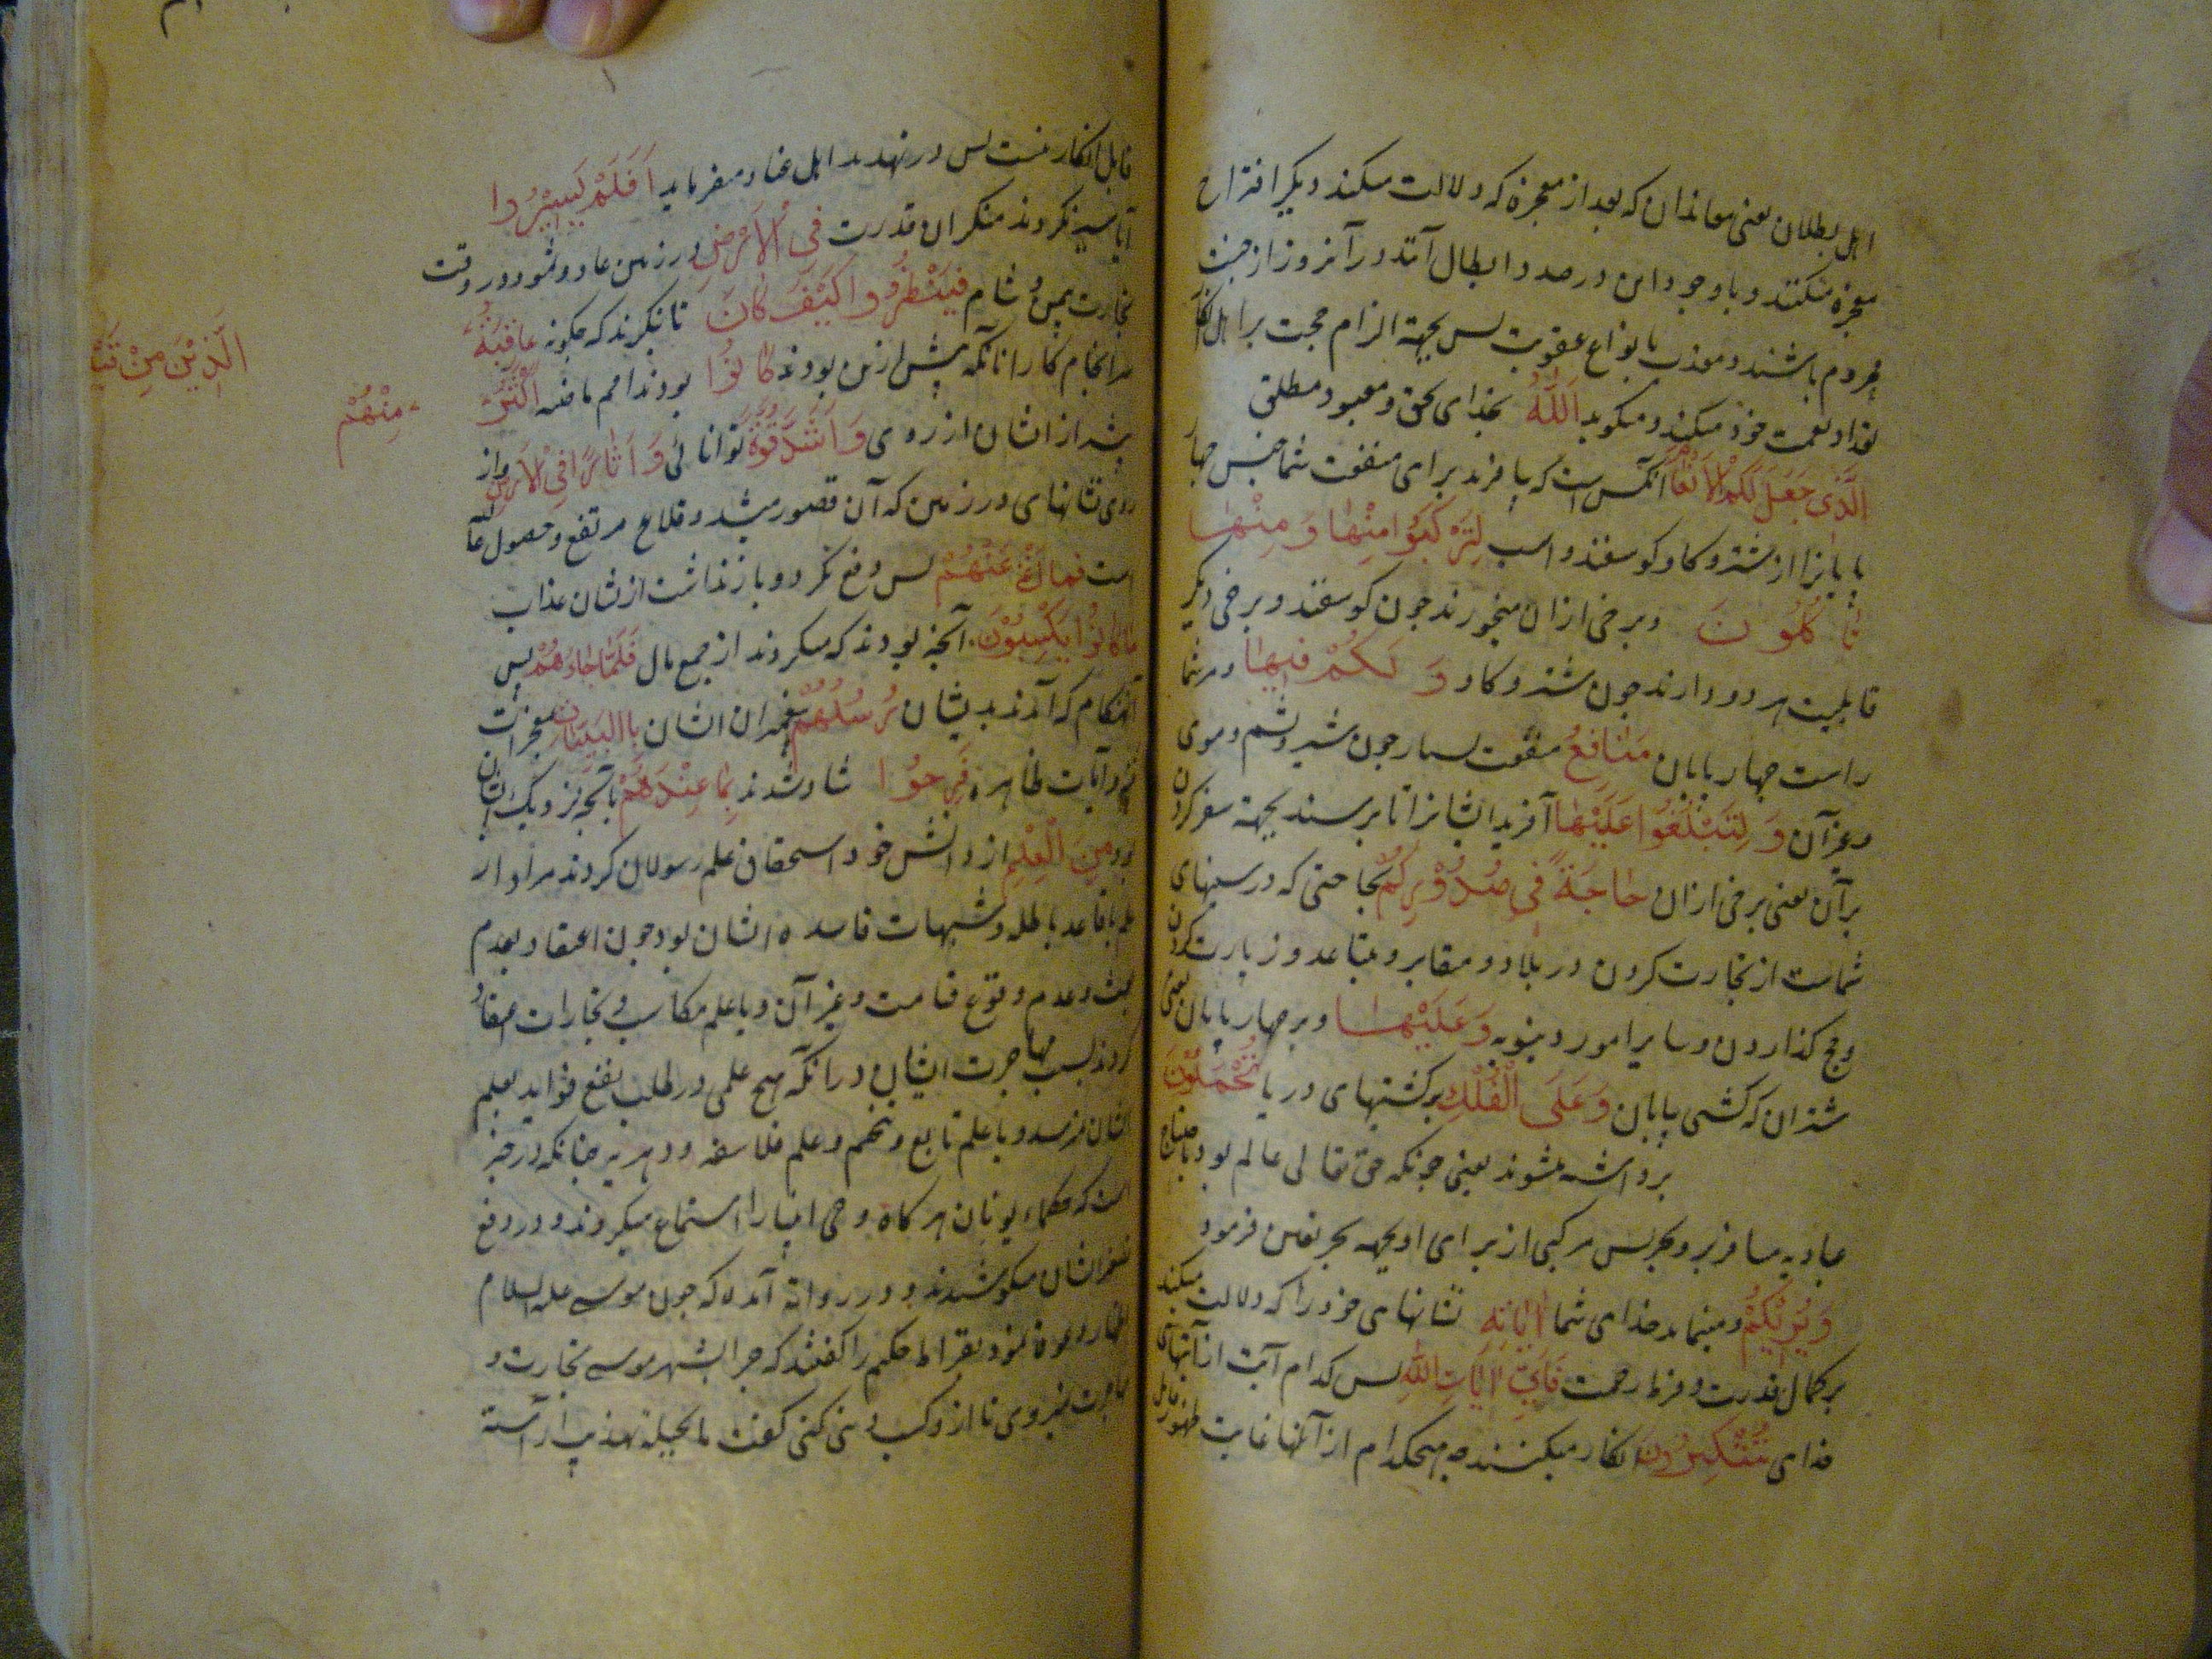 اهل بطلان یعنی معاندان که بعد از معجزه که دلالت میکند دیگر اقتراح
معجزه میکنند و با وجود این در صدد ابطال آند در آنروز از جنت
محروم باشند و معذب بانواع عقوبت پس بجهة الزام حجت بر اهل انکار
تعداد نعمت خود میکند و میکوید اَللّٰهُ خدای بحق و معبود مطلق
الَّذی جَعَلَ لَکُمُ الْاَنْعٰامَ آنکس است که بیافرید برای منفعت شما جنس چهار
پایانرا از شتر و کاو و کوسفند و اسب لِتَرْکَبُوا مِنْهٰا وَ مِنْهٰا
تَأْکُلُونَ و برخی ازان میخورند چون کوسفند و برخی دیگر
قابلیت هر دو دارند چون شتر و کاو وَ لَکُمْ فیهٰا و مر شما
راست چهار پایان مَنٰافِعُ منفعت بسیار چون شیر و پشم و موی
و غیر آن وَ لِتَبْلُغُوا عَلَیْهٰا آفرید ایشانرا تا برسند بجهة سفر کردن
بر آن یعنی برخی ازان حٰاجَةً فی صُدُوْرِکُمْ بحاجتی که در سینهای
شماست از تجارت کردن در بلاد و مقابر و زیارت کردن
و حج کذاردن و سایر امور دینویه وَ عَلَیْهٰا و بر چهار پایان یعنی
شتران که کشتی بیابان وَ عَلَی الْفُلْکِ بر کشتیهای دریا تُحْمَلُوْنَ
برداشته میشوند یعنی چونکه حق تعالی عالم بود باحتیاج
عباد به مسافر بر و بحر پس مرکبی از برای او بجهة بحر تعین فرمود
وَ یُرِیْکُمْ و مینماید خدای شما اٰیٰاتِهِ نشانهای خود را که دلالت میکند
بر کمال قدرت و فرط رحمت فَاَیَّ اٰیٰاتِ اللّٰهِ پس کدام آیت از آیتهای
خدای تُنْکِرُوْنَ انکار میکنند چه هیچکدام از آنها غایت ظهور قابل
قابل انکار نیست پس در تهدید اهل عناد میفرماید اَفَلَمْ یَسِیْرُوا
آیا سیر نکردند منکران قدرت فِی الْاَرْضِ در زمین عاد و ثمود در وقت
تجارت یمن و شام فَیَنْظُرُوا کَیْفَ کٰانَ تا نکرند که چکونه عٰاقِبَةُ
الَّذِیْنَ مِنْ قَبْ
سرانجام کار آنانکه پیش ازین بودند کٰانُوْا بودند امم ماضیه اَکْثَرَ
مِنْهُمْ
بیشتر از ایشان از روی وَ اَشَدَّ قُوَّةً توانائی وَ اٰثٰارًا فِی الْاَرْضِ و از
روی نشانهای در زمین که آن قصور مشید و قلاع مرتفع و حصول
است فَمٰا اَغْنٰی عَنْهُمْ پس دفع نکرد و باز نداشت از ایشان عذاب
مٰا کٰانُوا یَکْسِبُوْنَ آنچه بودند که میکردند از جمع مال فَلَمّٰا جٰاءَهُمْ پس
آنهنکام که آمدند بدیشان رُسُلُهُمْ پیغمبران ایشان بِالْبَیِّنٰاتِ بمعجزات
و آیات ظاهره فَرِحُوا شاد شدند بِمٰا عِنْدَهُمْ بآنچه نزدیک ایشان
بود مِنَ الْعِلْمِ از دانش خود و استحقاق علم رسولان کردند مراد از
علم یا قاعد باطله و شبهات فاسده ایشان بود چون اعتقاد بعدم
بعث و عدم وقوع قیامت و غیر آن و یا علم مکاسب و تجارات
کردند بسبب مهاجرت ایشان در آنکه هیچ علمی در طلب نفع فواید بعلم
ایشان نرسد و یا علم و علم فلاسفه و دهریه چنانکه در خبر
است که حکماء یونان هر کاه وحی انبیا را استماع میکردند و در دفع
ایشان میکوشیدند و در روایة آمده که چون موسی علیه السلام
اظهار دعوة نمود بقراط حکیم را کفتند که چرا بشهر موسی تجارت و
مهاجرت نمیروی تا از کسب کنی کفت ما بحیلة تهذیب آراسته